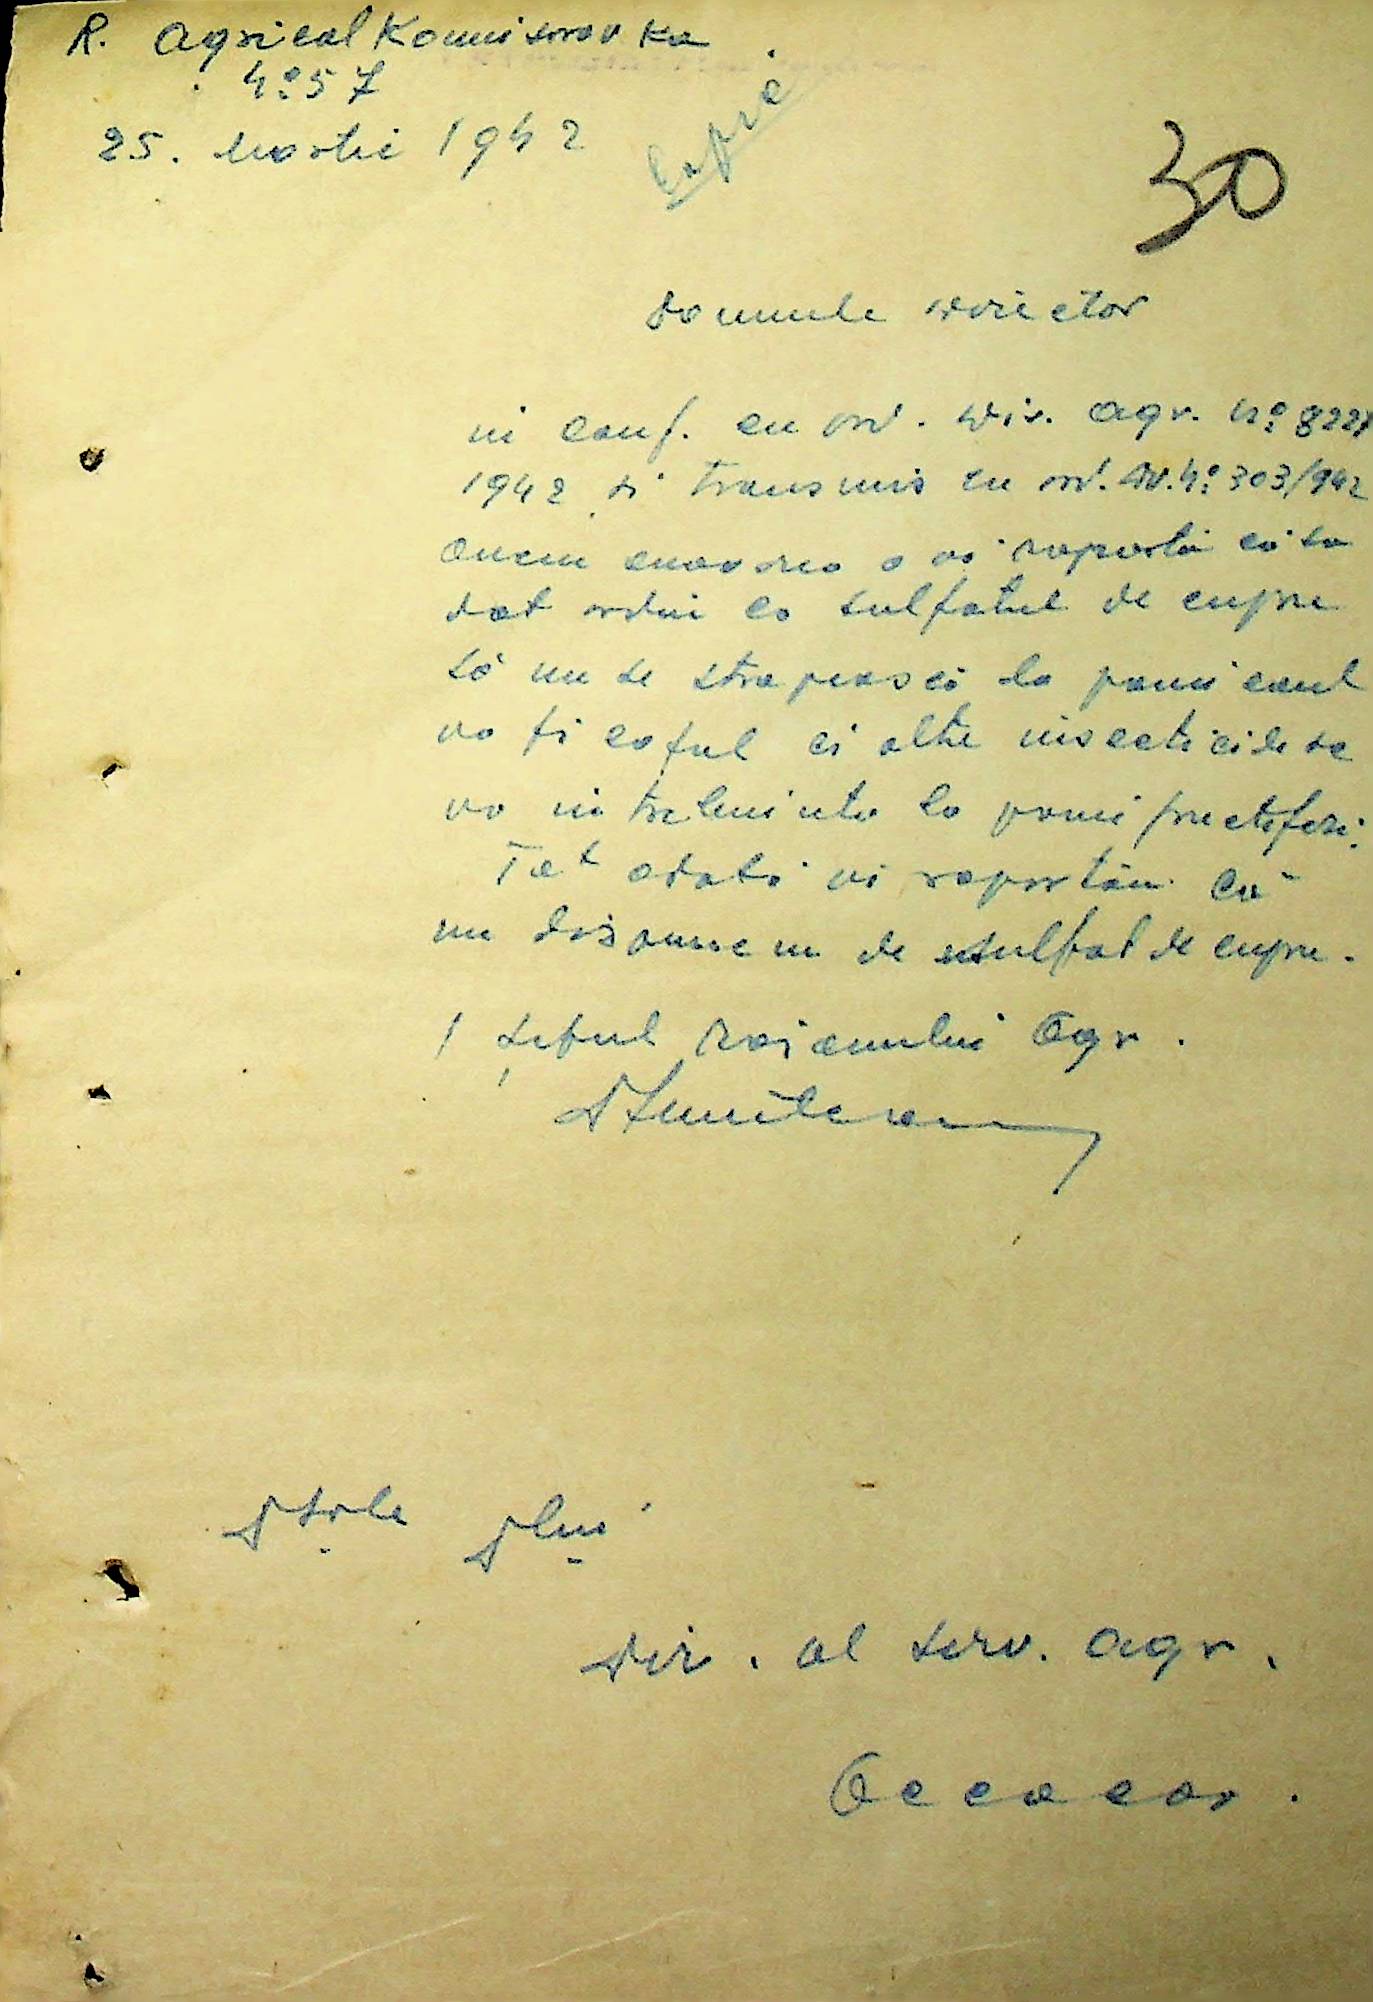 R. Agricol Komisarovka
No 57
25. Martie 1942
Copie
30
Domnule Director
în conf. cu ord. Dir. Agr. No 8227
1942 și transmis cu ord. Dv. No 303/942
avem onoarea a vă raporta că s'a
dat ordin ca sulfatul de cupru
să nu se stropească la pomi
va fi ci alte insecticide se
va întrebuința la pomi fructiferi.
Tot odată vă raportăm că
nu dispunem de sulfat de cupru.
Șeful Raionului Agr.
Dsale Dlui
Dir. al Serv. Agr.